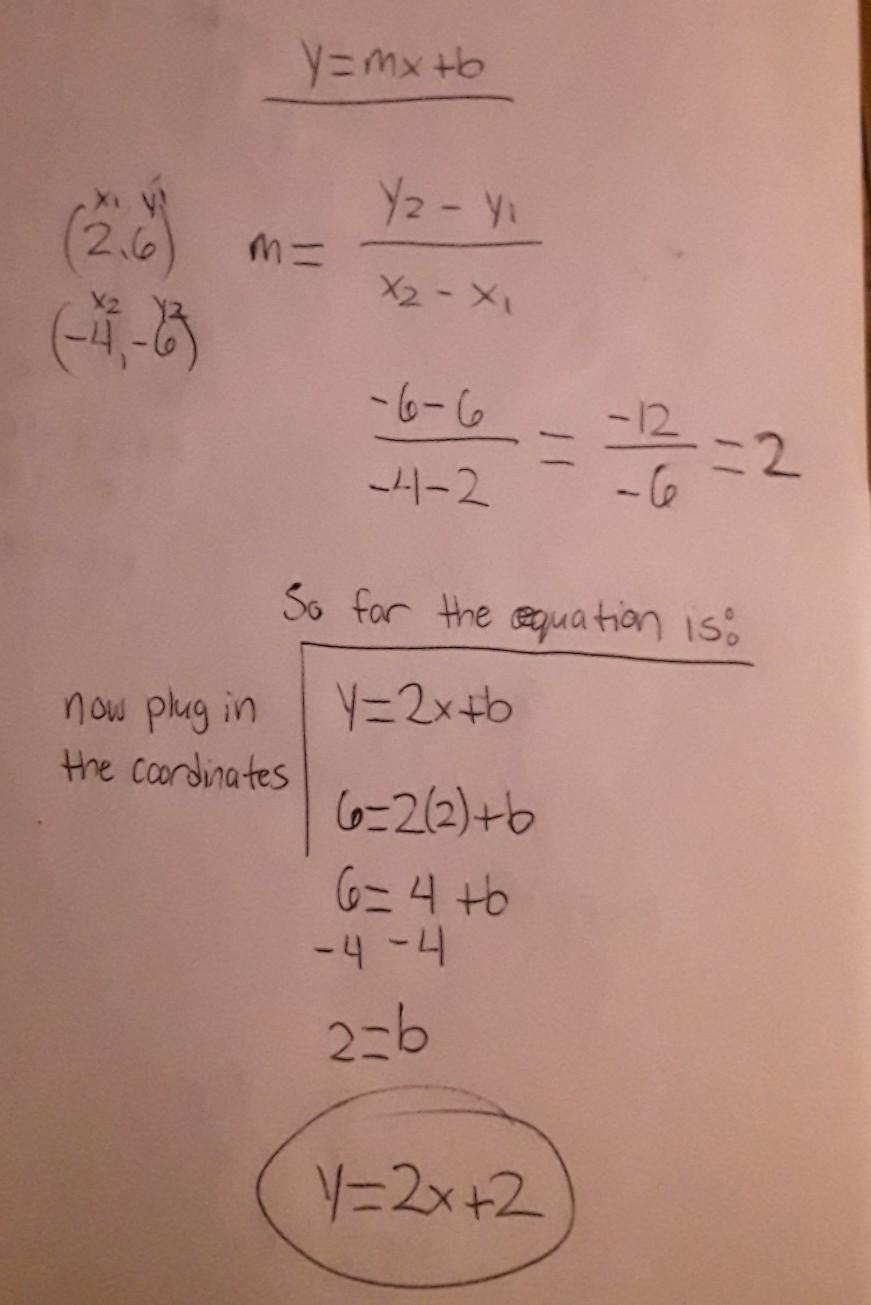 y=mx+b
x1 y1
(2,6)
m= y2 - y1
x2 - x1
x2 y2
(-4,-6)
-6-6
-4-2
= -12
-6
=2
So far the equation is:
now plug in
the coordinates
y=2x+b
6=2(2)+b
6=4+b
-4 -4
2=b
y=2x+2